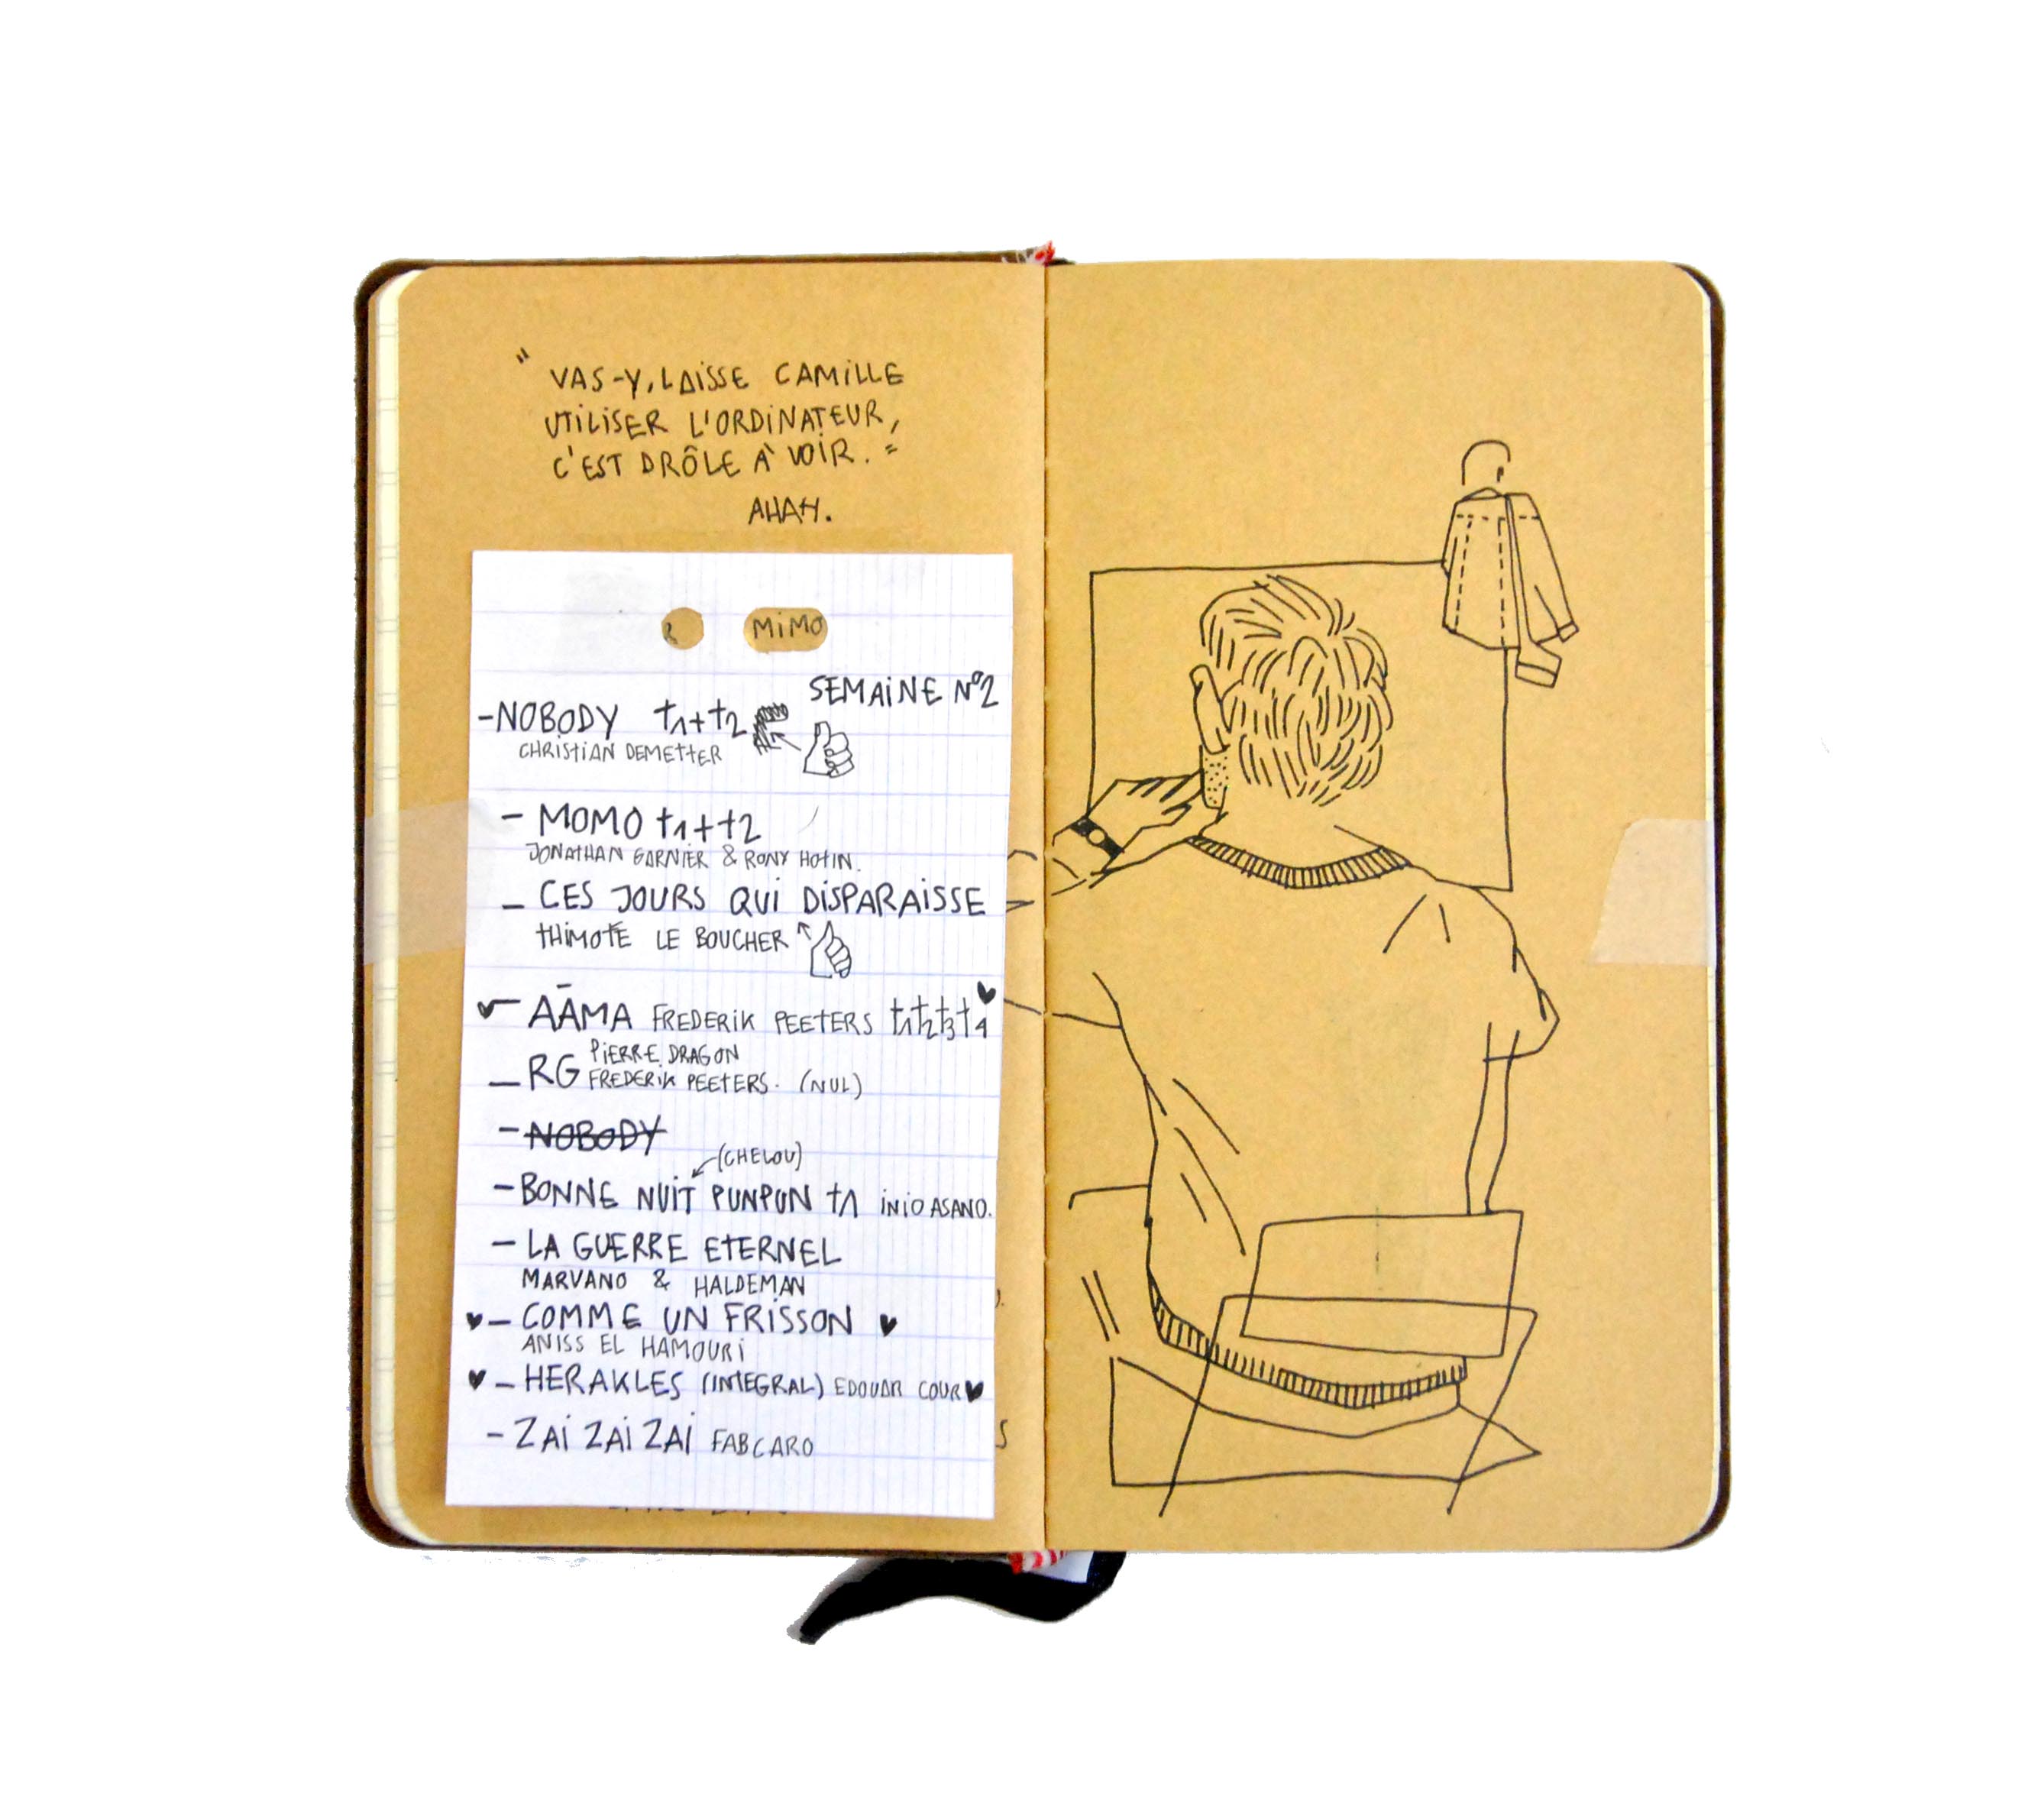 " VAS-Y, LAISSE CAMILLE
UTILISER L'ORDINATEUR,
C'EST DRÔLE À VOIR. "
AHAH.
MIMO
SEMAINE N°2
-NOBODY t1+t2
CHRISTIAN DEMETTER
- MOMO t1+t2
JONATHAN GARNIER & RONY HOTIN.
- CES JOURS QUI DISPARAISSE
THIMOTÉ LE BOUCHER
- AĀMA FREDERIK PEETERS t1t2t3t4
PIERRE DRAGON
- RG FREDERIK PEETERS. (NUL)
- NOBODY
(CHELOU)
- BONNE NUIT PUNPUN t1 INIO ASANO.
- LA GUERRE ETERNEL
MARVANO & HALDEMAN
♥ - COMME UN FRISSON ♥
ANISS EL HAMOURI
♥ - HERAKLES (INTEGRAL) EDOUAR COUR ♥
- ZAI ZAI ZAI FABCARO